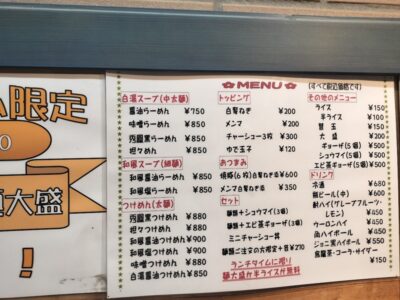 限定
大盛
!
MENU
(すべて税込価格です)
白湯スープ(中太麺)
醤油らーめん ¥750
味噌らーめん ¥850
秀麗黒らーめん ¥850
担々めん ¥850
和風スープ(細麺)
和風醤油らーめん ¥850
和風塩らーめん ¥850
つけめん(太麺)
秀麗黒つけめん ¥880
担々つけめん ¥880
和風醤油つけめん ¥900
和風塩つけめん ¥900
味噌つけめん ¥880
白湯醤油つけめん ¥850
トッピング
白髪ねぎ ¥200
メンマ ¥200
チャーシュー3枚 ¥300
ゆで玉子 ¥120
おつまみ
焼豚(6枚)白髪ねぎ添 ¥600
メンマ白髪ねぎ添 ¥350
セット
麺類+シュウマイ(3個)
麺類+エビ茶ギョーザ(3個)
ミニチャーシュー丼
麺類ご注文の方限定+¥210
ランチタイムに限り
麺大盛か半ライスが無料
その他のメニュー
ライス ¥150
半ライス ¥100
替玉 ¥150
大盛 ¥150
ギョーザ(5個) ¥500
シュウマイ(5個) ¥500
エビ茶ギョーザ(5個) ¥500
ドリンク
冷酒 ¥680
瓶ビール(中)
酎ハイ(グレープフルーツ・
レモン)
ウーロンハイ
缶ハイボール
ジョニ黒ハイボール ¥550
烏龍茶・コーラ・サイダー